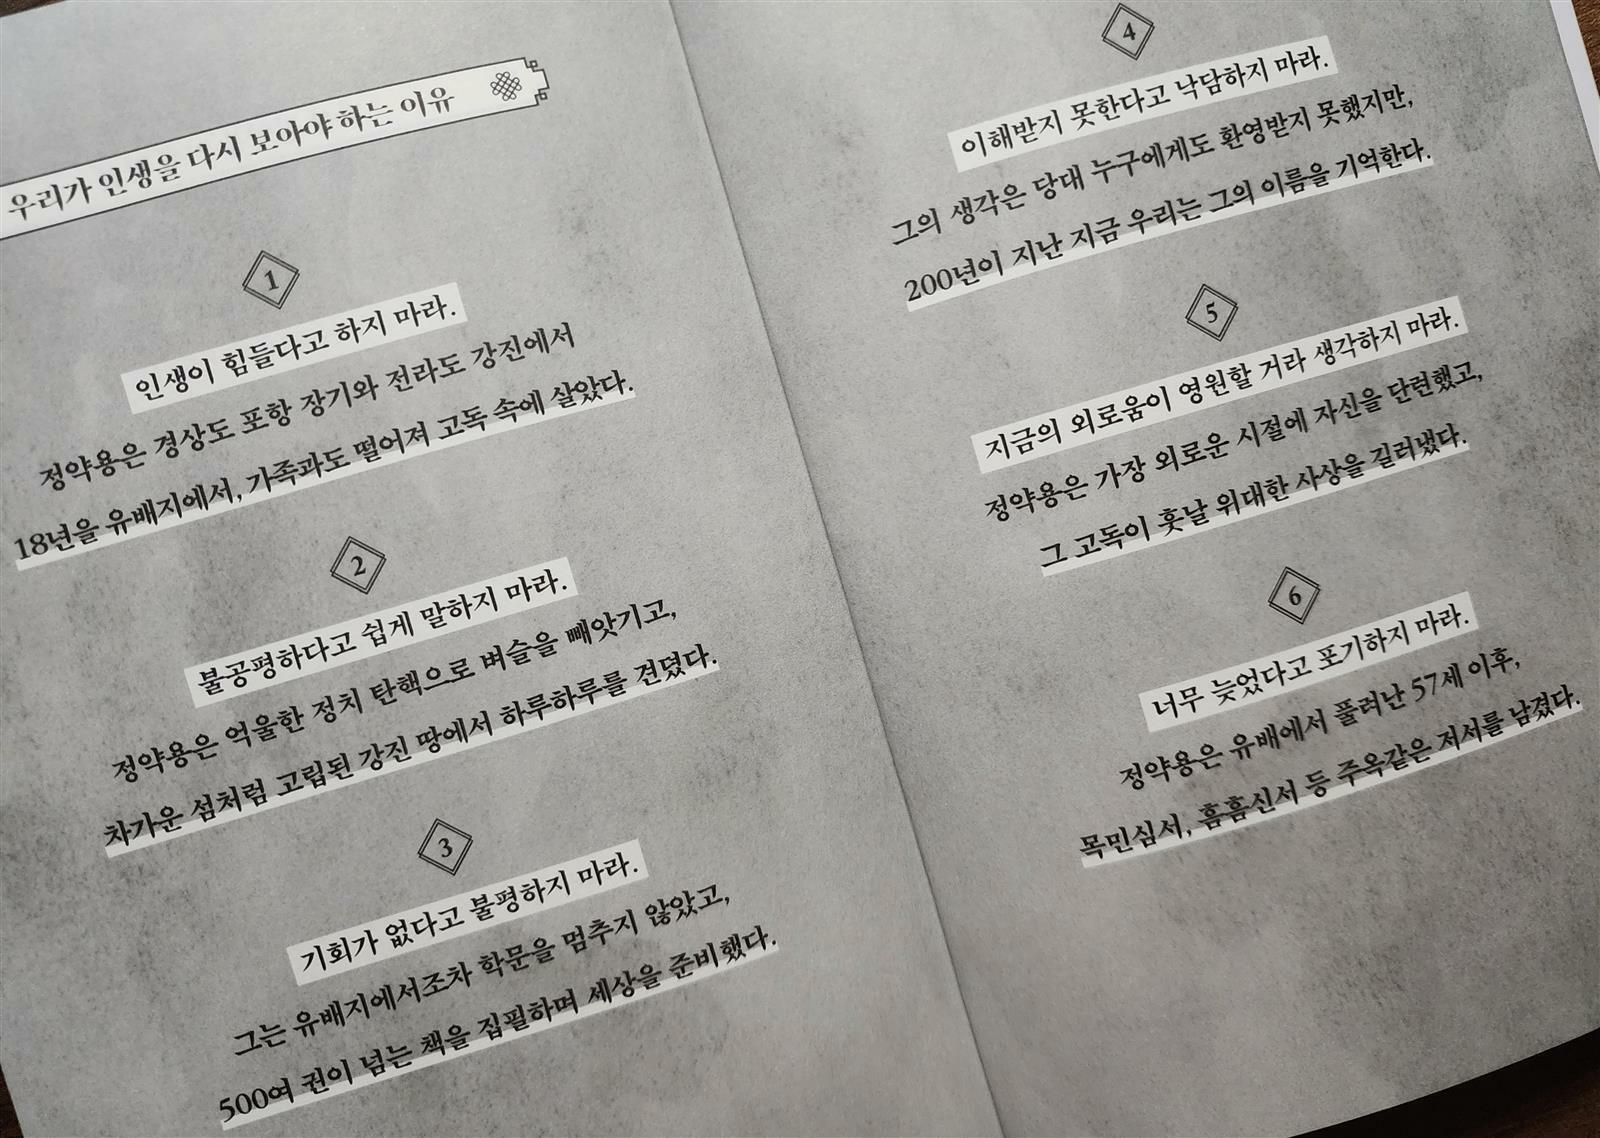 우리가 인생을 다시 보아야 하는 이유
1
인생이 힘들다고 하지 마라.
정약용은 경상도 포항 장기와 전라도 강진에서
18년을 유배지에서, 가족과도 떨어져 고독 속에 살았다.
2
불공평하다고 쉽게 말하지 마라.
정약용은 억울한 정치 탄핵으로 벼슬을 빼앗기고,
차가운 섬처럼 고립된 강진 땅에서 하루하루를 견뎠다.
3
기회가 없다고 불평하지 마라.
그는 유배지에서조차 학문을 멈추지 않았고,
500여 권이 넘는 책을 집필하며 세상을 준비했다.
4
이해받지 못한다고 낙담하지 마라.
그의 생각은 당대 누구에게도 환영받지 못했지만,
200년이 지난 지금 우리는 그의 이름을 기억한다.
5
지금의 외로움이 영원할 거라 생각하지 마라.
정약용은 가장 외로운 시절에 자신을 단련했고,
그 고독이 훗날 위대한 사상을 길러냈다.
6
너무 늦었다고 포기하지 마라.
정약용은 유배에서 풀려난 57세 이후,
목민심서, 흠흠신서 등 주옥같은 저서를 남겼다.